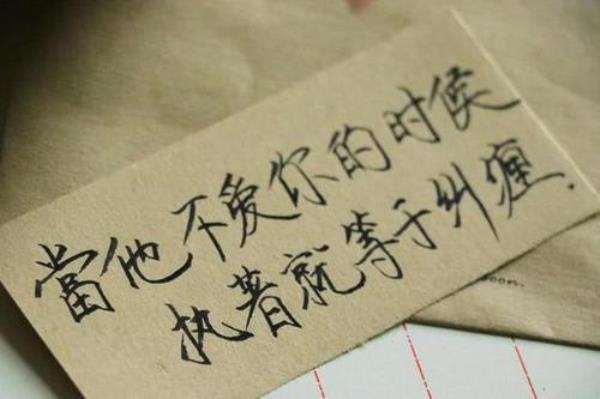 當他不爱你的时候
执著就等于纠缠.
oon.